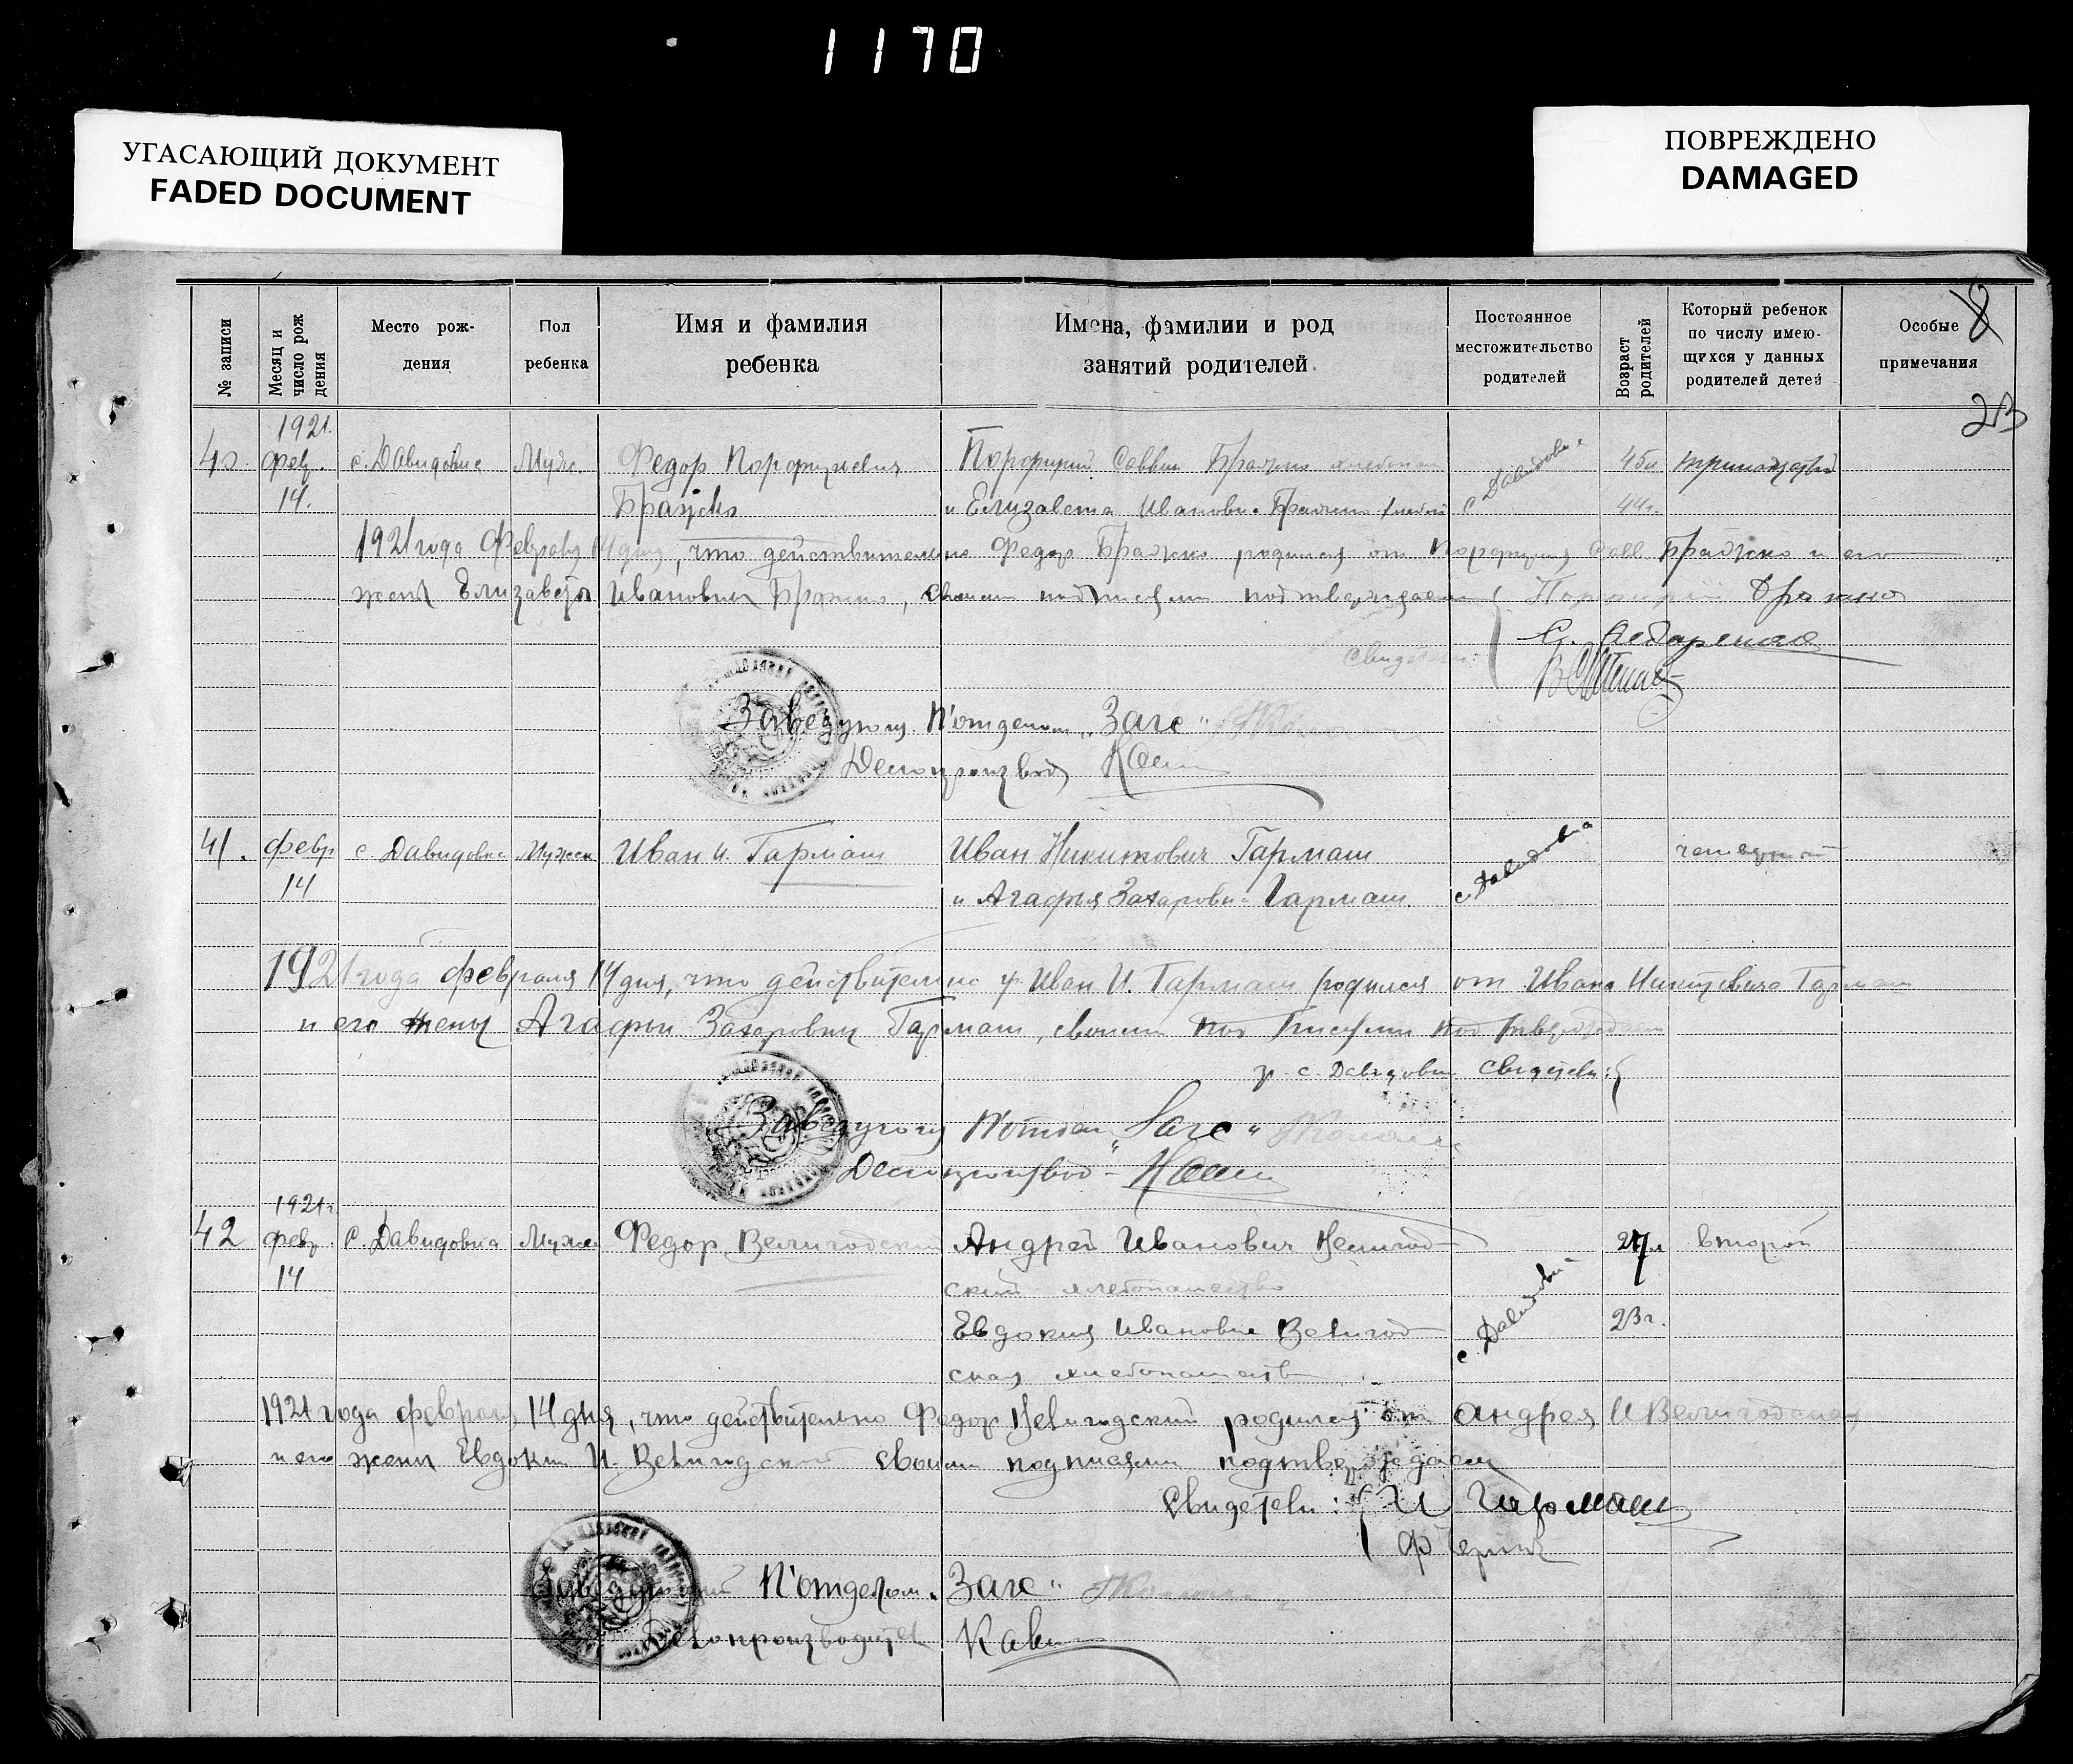 1170
УГАСАЮЩИЙ ДОКУМЕНТ
FADED DOCUMENT
ПОВРЕЖДЕНО
DAMAGED
8
23
№ записи
Месяц и число рождения
Место рождения
Пол ребенка
Имя и фамилия ребенка
Имена, фамилии и род занятий родителей
Постоянное местожительство родителей
Возраст родителей
Который ребенок по числу имеющихся у данных родителей детей
Особые примечания
1921.
40. фев. с. Давидовка Муж Федор Порфирьевич Порфирий Саввич Бражко с Давидовка 45л тринадцатый
14. Бражко и Елизавета Ивановна Бражко 44г.
1921 года февраля 14 дня, что действительно Федор Бражко родился от Порфирия Савв Бражко и его
жены Елизаветы Ивановны Бражко, своими подписями подтверждаем Порфирий Бражко
Свидетели:
Заведующ П'отделом „Загс"
Делопроизвод
41. февр с Давидовка Мужск Иван И. Гармаш Иван Никитович Гармаш с Давидовка четвертый
14 и Агафья Захаровна Гармаш.
1921 года февраля 14 дня, что действительно Иван И. Гармаш родился от Ивана Никитовича Гармаш
и его жены Агафьи Захаровны Гармаш, своими подписями подтверждаем
гр. с. Давидовки свидетели:
Заведующ П'отдел „Загс"
Делопроизвод
1921 г
42 фев. с. Давидовка Мужс Федор Велигодский Андрей Иванович Велигод- с. Давидовка 27л второй
14 ский хлебопашество
Евдокия Ивановна Велигод- 23г.
ская хлебопашеств
1921 года февраля 14 дня, что действительно Федор Велигодский родился от Андрея И Велигодского
и его жены Евдокии И. Велигодской своими подписями подтверждаем
Свидетели: И Гармаш
Ф
Заведующий П'отделом „Загс"
Делопроизводител